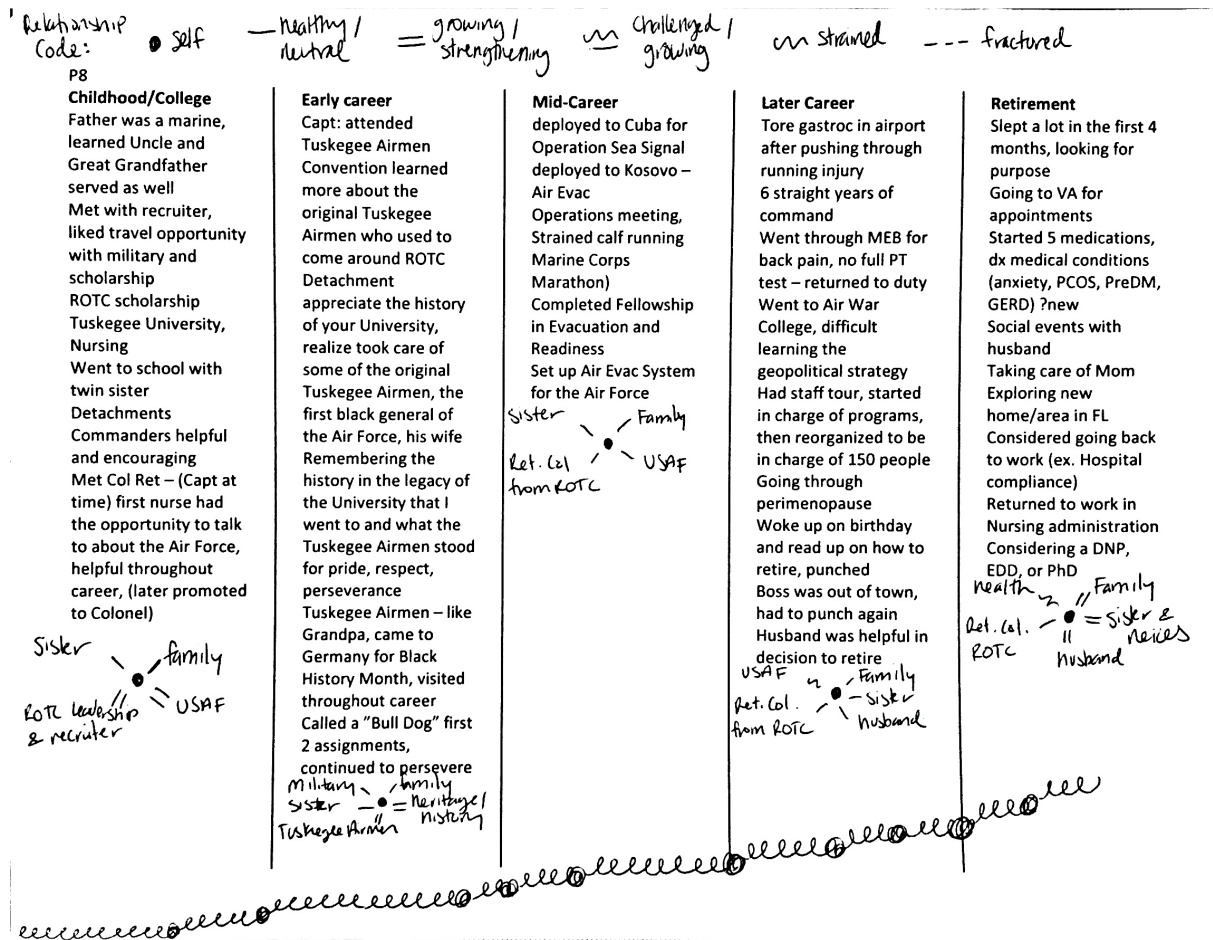 Relationship
Code:
self
healthy /
neutral
growing /
strengthening
challenged /
growing
strained
fractured
P8
Childhood/College
Father was a marine,
learned Uncle and
Great Grandfather
served as well
Met with recruiter,
liked travel opportunity
with military and
scholarship
ROTC scholarship
Tuskegee University,
Nursing
Went to school with
twin sister
Detachments
Commanders helpful
and encouraging
Met Col Ret – (Capt at
time) first nurse had
the opportunity to talk
to about the Air Force,
helpful throughout
career, (later promoted
to Colonel)
Sister
family
ROTC leadership
& recruiter
USAF
Early career
Capt: attended
Tuskegee Airmen
Convention learned
more about the
original Tuskegee
Airmen who used to
come around ROTC
Detachment
appreciate the history
of your University,
realize took care of
some of the original
Tuskegee Airmen, the
first black general of
the Air Force, his wife
Remembering the
history in the legacy of
the University that I
went to and what the
Tuskegee Airmen stood
for pride, respect,
perseverance
Tuskegee Airmen – like
Grandpa, came to
Germany for Black
History Month, visited
throughout career
Called a "Bull Dog" first
2 assignments,
continued to persevere
military
family
sister
heritage/
history
Tuskegee Airmen
Mid-Career
deployed to Cuba for
Operation Sea Signal
deployed to Kosovo –
Air Evac
Operations meeting,
Strained calf running
Marine Corps
Marathon)
Completed Fellowship
in Evacuation and
Readiness
Set up Air Evac System
for the Air Force
Sister
Family
Ret. Col
from ROTC
USAF
Later Career
Tore gastroc in airport
after pushing through
running injury
6 straight years of
command
Went through MEB for
back pain, no full PT
test – returned to duty
Went to Air War
College, difficult
learning the
geopolitical strategy
Had staff tour, started
in charge of programs,
then reorganized to be
in charge of 150 people
Going through
perimenopause
Woke up on birthday
and read up on how to
retire, punched
Boss was out of town,
had to punch again
Husband was helpful in
decision to retire
USAF
Family
Ret. Col.
from ROTC
sister
husband
Retirement
Slept a lot in the first 4
months, looking for
purpose
Going to VA for
appointments
Started 5 medications,
dx medical conditions
(anxiety, PCOS, PreDM,
GERD) ?new
Social events with
husband
Taking care of Mom
Exploring new
home/area in FL
Considered going back
to work (ex. Hospital
compliance)
Returned to work in
Nursing administration
Considering a DNP,
EDD, or PhD
health
Family
Ret. Col.
ROTC
sister &
neices
husband